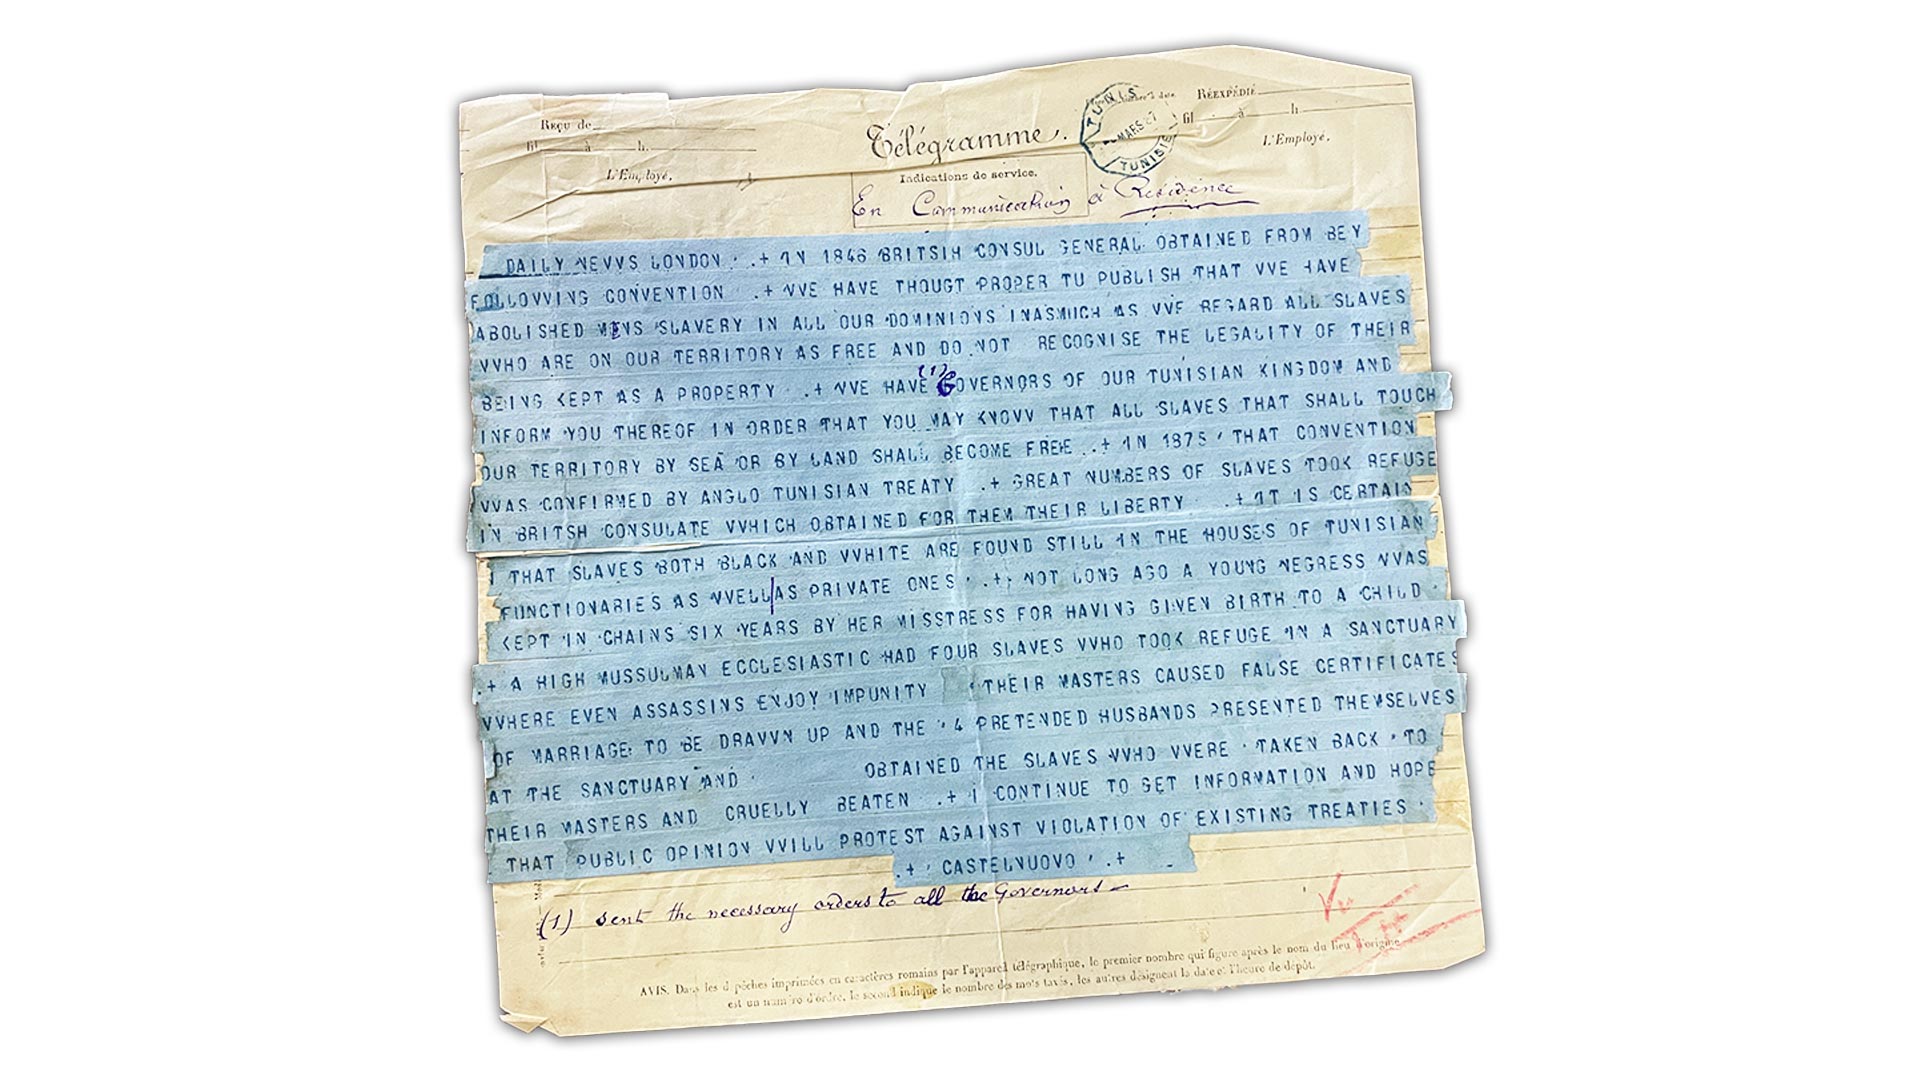 Reçu de
fil à h.
L'Employé.
Télégramme.
Indications de service.
En Communication à Résidence
TUNIS
MARS 87
TUNISIE
RÉEXPÉDIÉ
fil à h.
L'Employé.
DAILY NEVVS LONDON .+ IN 1846 BRITSIH CONSUL GENERAL OBTAINED FROM BEY
FOLLOVVING CONVENTION .+ VVE HAVE THOUGT PROPER TU PUBLISH THAT VVE HAVE
ABOLISHED MENS SLAVERY IN ALL OUR DOMINIONS INASMUCH AS VVE REGARD ALL SLAVES
VVHO ARE ON OUR TERRITORY AS FREE AND DO NOT RECOGNISE THE LEGALITY OF THEIR
BEING KEPT AS A PROPERTY .+ VVE HAVE (1) GOVERNORS OF OUR TUNISIAN KINGDOM AND
INFORM YOU THEREOF IN ORDER THAT YOU MAY KNOVV THAT ALL SLAVES THAT SHALL TOUCH
OUR TERRITORY BY SEA OR BY LAND SHALL BECOME FREE .+ IN 1875 THAT CONVENTION
VVAS CONFIRMED BY ANGLO TUNISIAN TREATY .+ GREAT NUMBERS OF SLAVES TOOK REFUGE
IN BRITSH CONSULATE VVHICH OBTAINED FOR THEM THEIR LIBERTY .+ IT IS CERTAIN
THAT SLAVES BOTH BLACK AND VVHITE ARE FOUND STILL IN THE HOUSES OF TUNISIAN
FUNCTIONARIES AS VVELL|AS PRIVATE ONES .+ NOT LONG AGO A YOUNG NEGRESS VVAS
KEPT IN CHAINS SIX YEARS BY HER MISSTRESS FOR HAVING GIVEN BIRTH TO A CHILD
.+ A HIGH MUSSULMAN ECCLESIASTIC HAD FOUR SLAVES VVHO TOOK REFUGE IN A SANCTUARY
VVHERE EVEN ASSASSINS ENJOY IMPUNITY THEIR MASTERS CAUSED FALSE CERTIFICATES
OF MARRIAGE TO BE DRAVVN UP AND THE 4 PRETENDED HUSBANDS PRESENTED THEMSELVES
AT THE SANCTUARY AND OBTAINED THE SLAVES VVHO VVERE TAKEN BACK TO
THEIR MASTERS AND CRUELLY BEATEN .+ I CONTINUE TO GET INFORMATION AND HOPE
THAT PUBLIC OPINION VVILL PROTEST AGAINST VIOLATION OF EXISTING TREATIES
.+ CASTELNUOVO .+
(1) sent the necessary orders to all the Governors
Vu
AVIS. Dans les dépêches imprimées en caractères romains par l'appareil télégraphique, le premier nombre qui figure après le nom du lieu d'origine
est un numéro d'ordre, le second indique le nombre des mots taxés, les autres désignent la date et l'heure de dépôt.